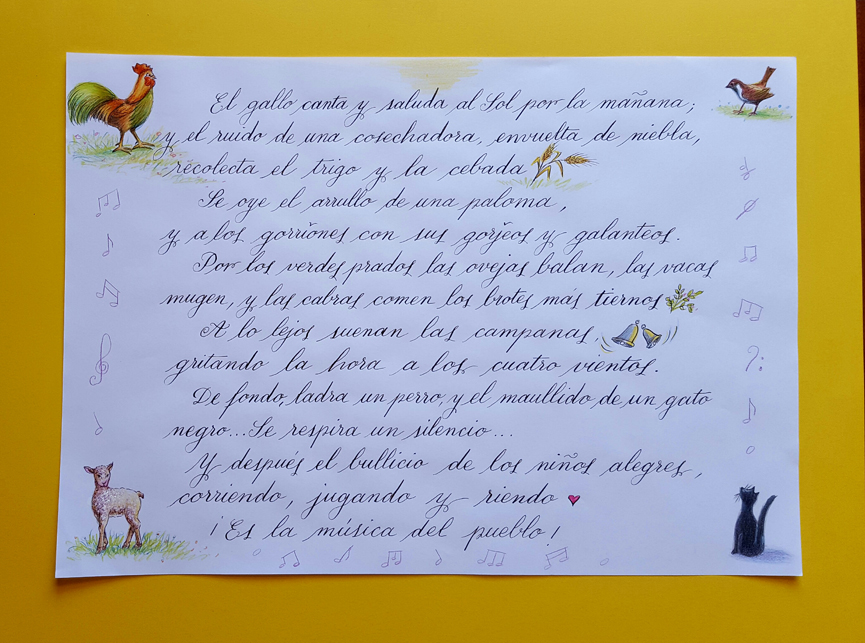 El gallo canta y saluda al Sol por la mañana;
y el ruido de una cosechadora, envuelta de niebla,
recolecta el trigo y la cebada
Se oye el arrullo de una paloma,
y a los gorriones con sus gorjeos y galanteos.
Por los verdes prados las ovejas balan, las vacas
mugen, y las cabras comen los brotes más tiernos
A lo lejos suenan las campanas,
gritando la hora a los cuatro vientos.
De fondo, ladra un perro, y el maullido de un gato
negro... Se respira un silencio...
Y después el bullicio de los niños alegres,
corriendo, jugando y riendo
¡Es la música del pueblo!